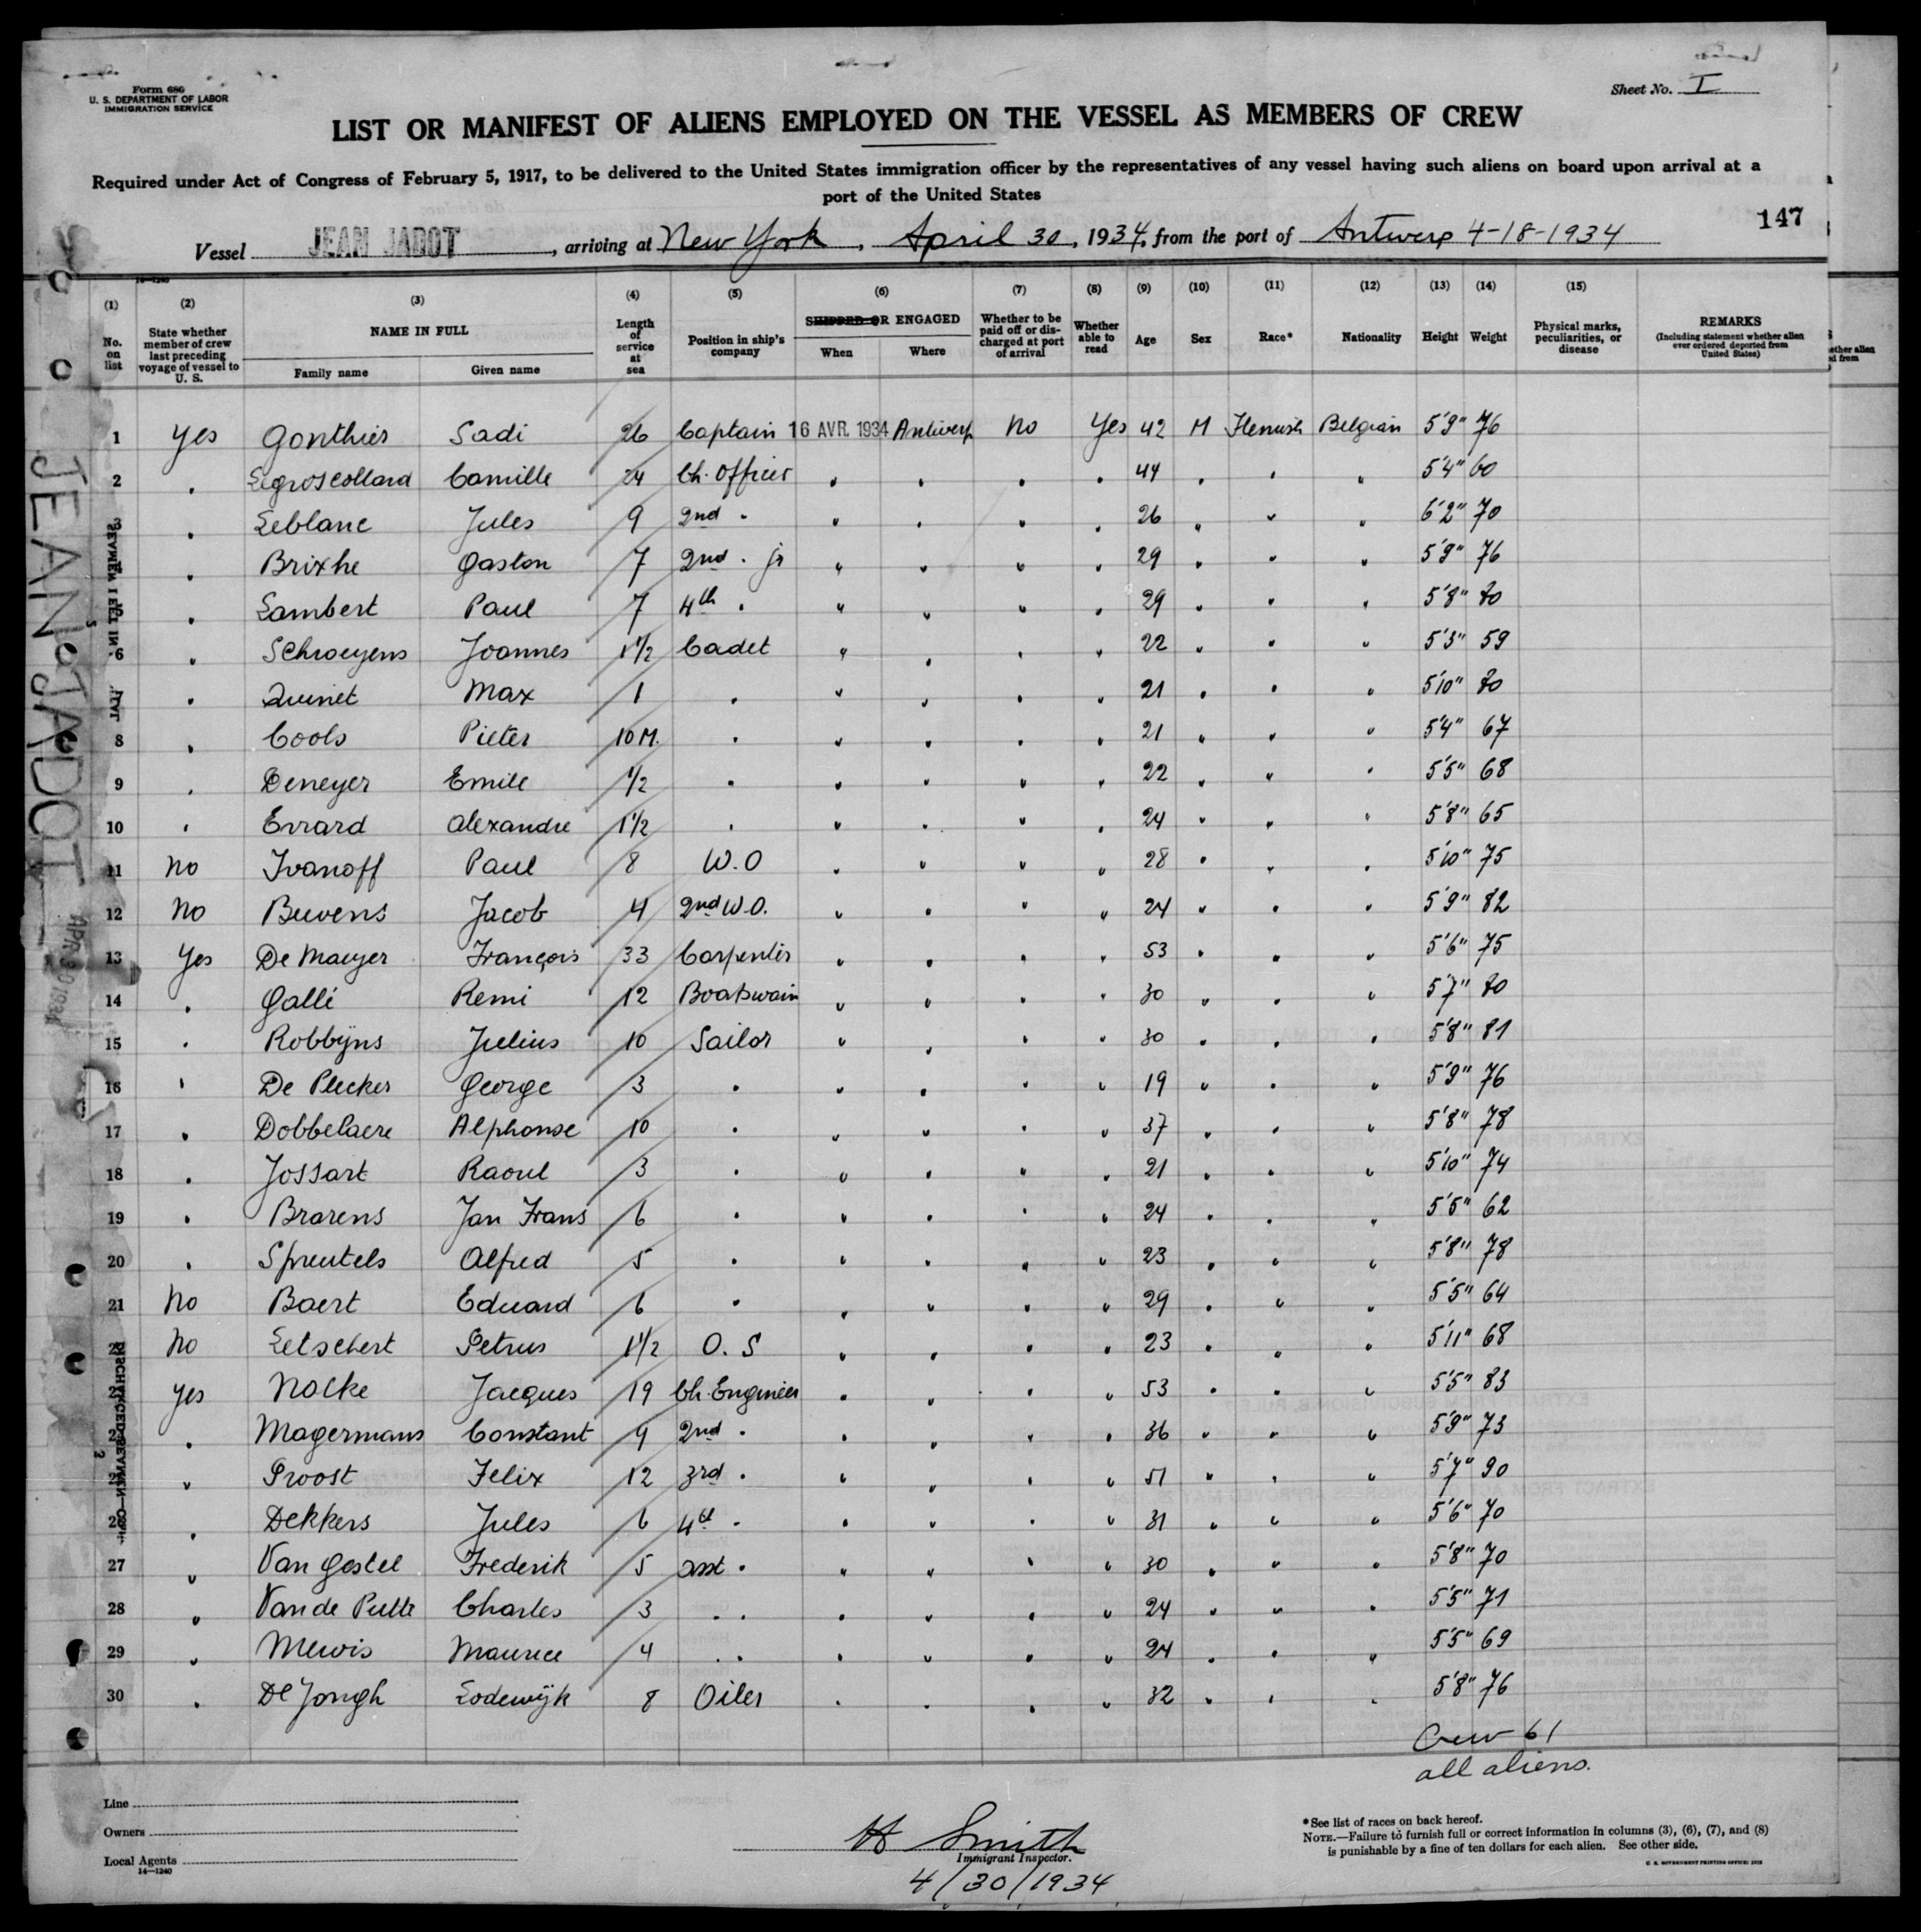 Form 686
U. S. DEPARTMENT OF LABOR
IMMIGRATION SERVICE
Sheet No. I
LIST OR MANIFEST OF ALIENS EMPLOYED ON THE VESSEL AS MEMBERS OF CREW
Required under Act of Congress of February 5, 1917, to be delivered to the United States immigration officer by the representatives of any vessel having such aliens on board upon arrival at a
port of the United States
147
Vessel JEAN JADOT, arriving at New York, April 30, 1934, from the port of Antwerp 4-18-1934
(1) No. on list
(2) State whether member of crew last preceding voyage of vessel to U. S.
(3) NAME IN FULL Family name Given name
(4) Length of service at sea
(5) Position in ship's company
(6) SHIPPED OR ENGAGED When Where
(7) Whether to be paid off or discharged at port of arrival
(8) Whether able to read
(9) Age
(10) Sex
(11) Race*
(12) Nationality
(13) Height
(14) Weight
(15) Physical marks, peculiarities, or disease
REMARKS (Including statement whether alien ever ordered deported from United States)
1 Yes Gonthier Sadi 26 Captain 16 AVR. 1934 Antwerp No Yes 42 M Flemish Belgian 5'9" 76
2 " Legroscollard Camille 24 Ch. Officer " " " " 44 " " " 5'4" 60
3 " Leblanc Jules 9 2nd " " " " " 26 " " " 6'2" 70
4 " Brixhe Gaston 7 2nd " jr " " " " 29 " " " 5'9" 76
5 " Lambert Paul 7 4th " " " " " 29 " " " 5'8" 80
6 " Schroeyens Joannes 1 1/2 Cadet " " " " 22 " " " 5'3" 59
7 " Quinet Max 1 " " " " " 21 " " " 5'10" 80
8 " Cools Pieter 10 M. " " " " " 21 " " " 5'4" 67
9 " Deneyer Emile 1/2 " " " " " 22 " " " 5'5" 68
10 " Evrard Alexandre 1 1/2 " " " " " 24 " " " 5'8" 65
11 No Ivanoff Paul 8 W.O " " " " 28 " " " 5'10" 75
12 No Buvens Jacob 4 2nd W.O. " " " " 24 " " " 5'9" 82
13 Yes De Maeyer François 33 Carpenter " " " " 53 " " " 5'6" 75
14 " Gallé Remi 12 Boatswain " " " " 30 " " " 5'7" 80
15 " Robbyns Julius 10 Sailor " " " " 30 " " " 5'8" 81
16 " De Plecker George 3 " " " " " 19 " " " 5'9" 76
17 " Dobbelaere Alphonse 10 " " " " " 37 " " " 5'8" 78
18 " Jossart Raoul 3 " " " " " 21 " " " 5'10" 74
19 " Brarens Jan Frans 6 " " " " " 24 " " " 5'5" 62
20 " Spruutels Alfred 5 " " " " " 23 " " " 5'8" 78
21 No Baert Eduard 6 " " " " " 29 " " " 5'5" 64
22 No Letschert Petrus 1 1/2 O. S " " " " 23 " " " 5'11" 68
23 Yes Nolke Jacques 19 Ch. Engineer " " " " 53 " " " 5'5" 83
24 " Magermans Constant 9 2nd " " " " " 36 " " " 5'9" 73
25 " Proost Felix 12 3rd " " " " " 51 " " " 5'7" 90
26 " Dekkers Jules 6 4th " " " " " 31 " " " 5'6" 70
27 " Van Gestel Frederik 5 asst " " " " " 30 " " " 5'8" 70
28 " Van de Putte Charles 3 " " " " " " 24 " " " 5'5" 71
29 " Mewis Maurice 4 " " " " " " 24 " " " 5'5" 69
30 " De Jongh Lodewijk 8 Oiler " " " " 32 " " " 5'8" 76
Crew 61
all aliens.
Line
Owners
Local Agents
14—1240
H Smith
Immigrant Inspector.
4/30/1934
*See list of races on back hereof.
NOTE.—Failure to furnish full or correct information in columns (3), (6), (7), and (8)
is punishable by a fine of ten dollars for each alien. See other side.
U. S. GOVERNMENT PRINTING OFFICE: 1932
JEAN JADOT
APR 30 1934